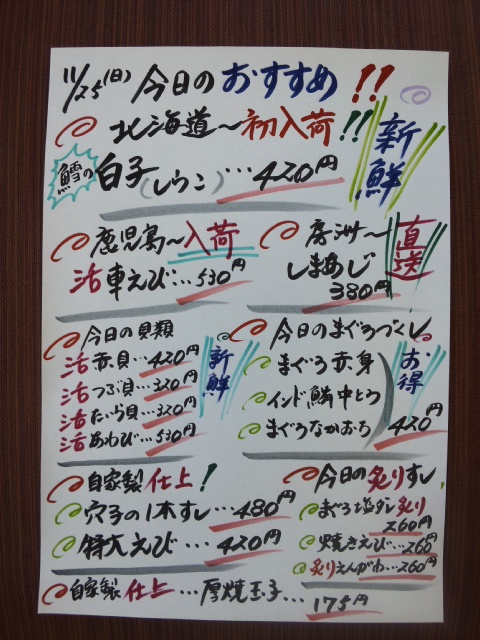 11/25(日) 今日のおすすめ!!
北海道〜初入荷!! 新鮮
鱈の白子(しらこ)…420円
鹿児島〜入荷
活車えび…530円
房州〜 直送
しまあじ
380円
今日の貝類 新鮮
活赤貝…420円
活つぶ貝…320円
活たいら貝…320円
活あわび…530円
今日のまぐろづくし お得
まぐろ赤身
インド鮪中とろ
まぐろなかおち
420円
自家製仕上!
穴子の1本すし…480円
特大えび…420円
今日の炙りすし
まぐろ塩ダレ炙り
260円
焼きえび…260円
炙りえんがわ…260円
自家製仕上…厚焼玉子…175円